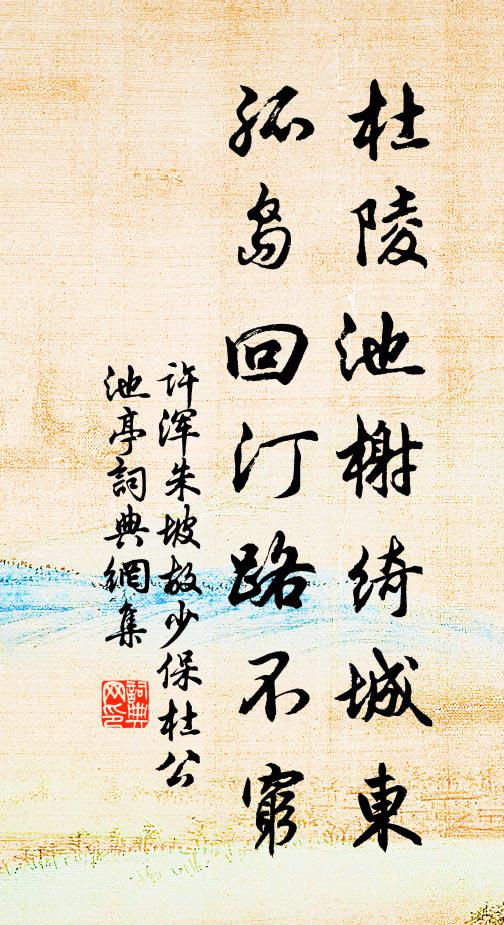 杜陵池榭綺城東
孤島回汀路不窮
許渾朱坡故少保杜公
池亭詞典網集
詞典
网印